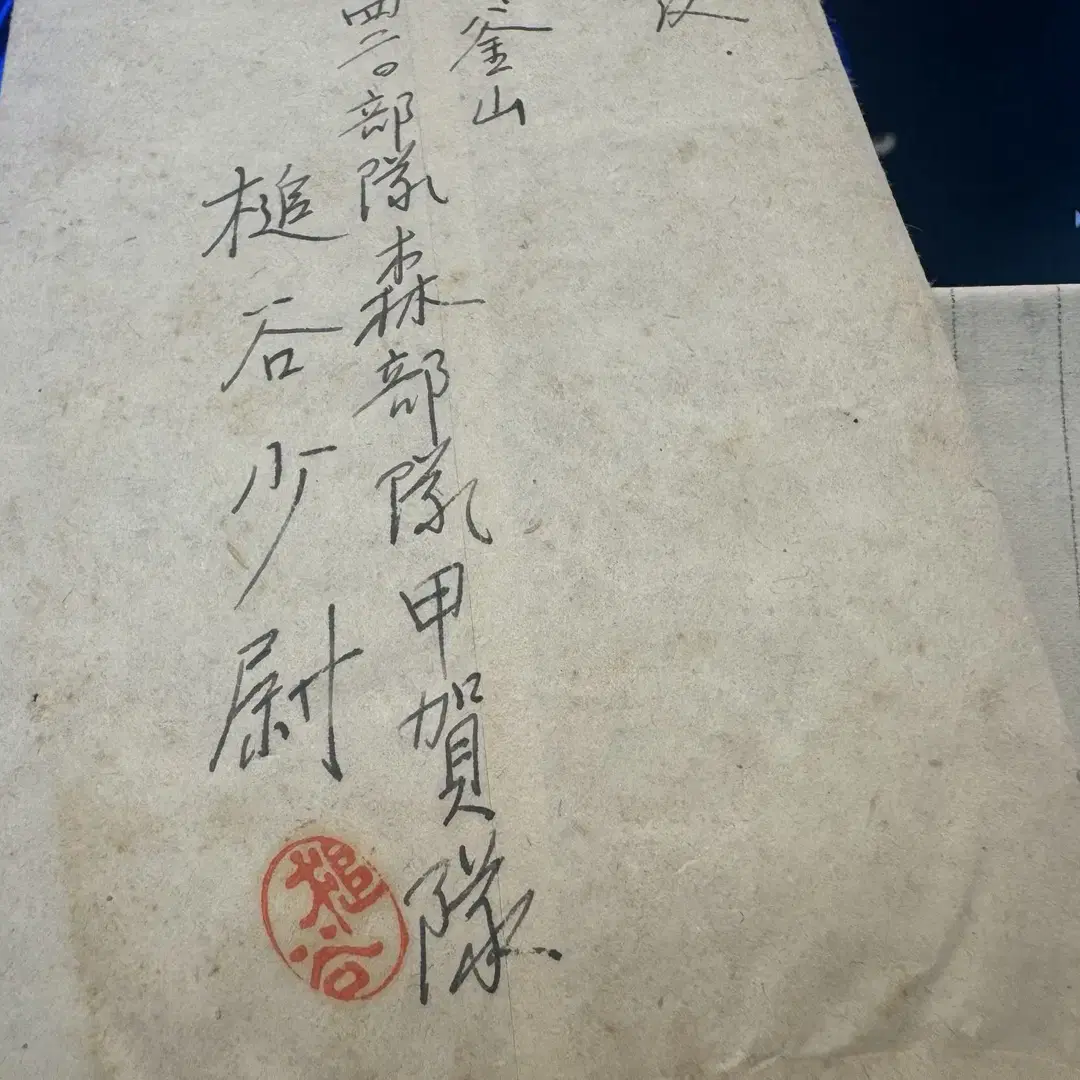 釜山
四二〇部隊森部隊甲賀隊
槌谷少尉
槌谷